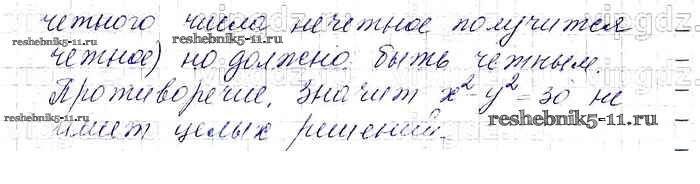 четного числа нечетное получится
reshebnik5-11.ru
reshebnik5-11.ru
четное) но должно быть четным.
Противоречие, значит x²-y²=30 не
имеет целых решений.
reshebnik5-11.ru
reshebnik5-11.ru